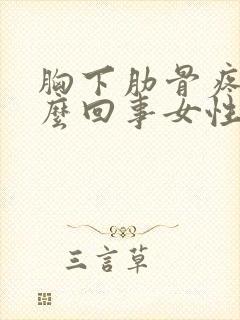 胸下肋骨疼
麼回事女性
三言草